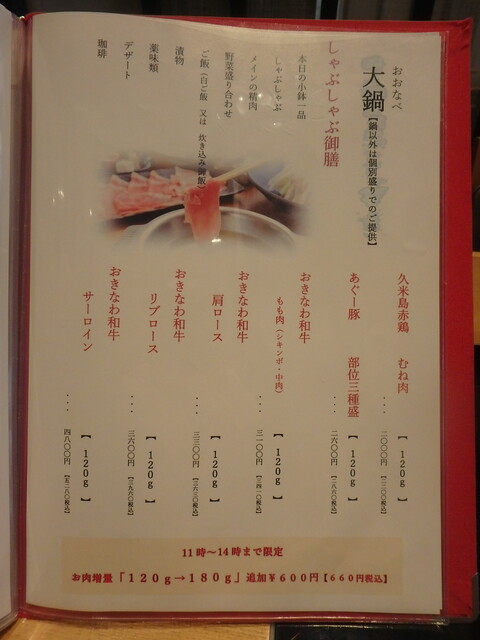 おおなべ
大鍋【鍋以外は個別盛りでのご提供】
しゃぶしゃぶ御膳
本日の小鉢一品
しゃぶしゃぶ
メインの精肉
野菜盛り合わせ
ご飯（白ご飯 又は 炊き込み御飯）
漬物
薬味類
デザート
珈琲
久米島赤鶏 むね肉
・・・【120g】
二〇〇〇円【二二〇〇税込】
あぐー豚 部位三種盛
・・・【120g】
二六〇〇円【二八六〇税込】
おきなわ和牛
もも肉（シキンボ・中肉）
・・・【120g】
三一〇〇円【三四一〇税込】
おきなわ和牛
肩ロース
・・・【120g】
三三〇〇円【三六三〇税込】
おきなわ和牛
リブロース
・・・【120g】
三六〇〇円【三九六〇税込】
おきなわ和牛
サーロイン
・・・【120g】
四八〇〇円【五二八〇税込】
11時～14時まで限定
お肉増量「120g→180g」追加¥600円【660円税込】